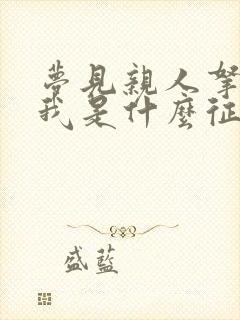 夢見親人
我是什麼征
盛藍